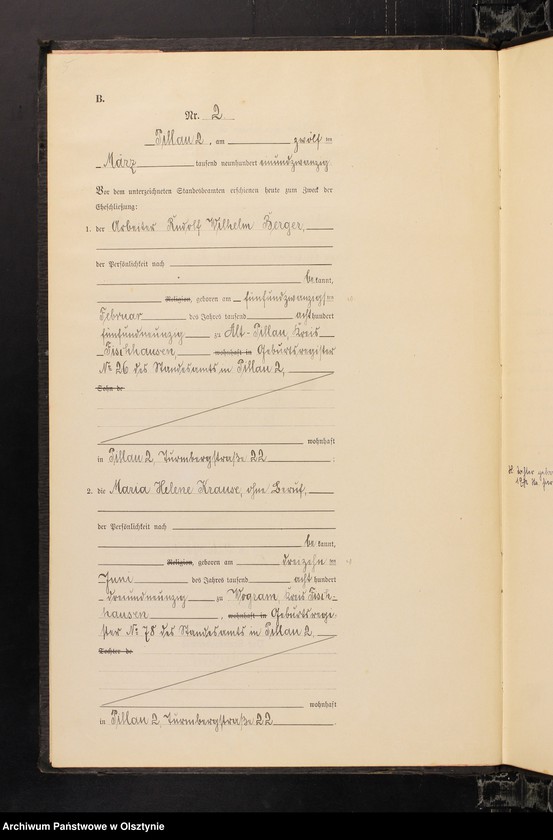 B.
Nr. 2
Pillau 2, am zwölften
März tausend neunhundert einundzwanzig.
Vor dem unterzeichneten Standesbeamten erschienen heute zum Zweck der
Eheschließung:
1. der Arbeiter Rudolf Wilhelm Berger,
der Persönlichkeit nach
bekannt,
Religion, geboren am fünfundzwanzigsten
Februar des Jahres tausend achthundert
fünfundneunzig zu Alt-Pillau, Kreis
Fischhausen, wohnhaft in Geburtsregister
№ 26 des Standesamts in Pillau 2,
Sohn de
wohnhaft
in Pillau 2, Turmbergstraße 22.
2. die Maria Helene Krause, ohne Beruf,
der Persönlichkeit nach
bekannt,
Religion, geboren am dreizehnten
Juni des Jahres tausend achthundert
dreiundneunzig zu Wogram, Kreis Fisch-
hausen, wohnhaft in Geburtsregi-
ster № 78 des Standesamts in Pillau 2
Tochter de
wohnhaft
in Pillau 2, Turmbergstraße 22.
Archiwum Państwowe w Olsztynie